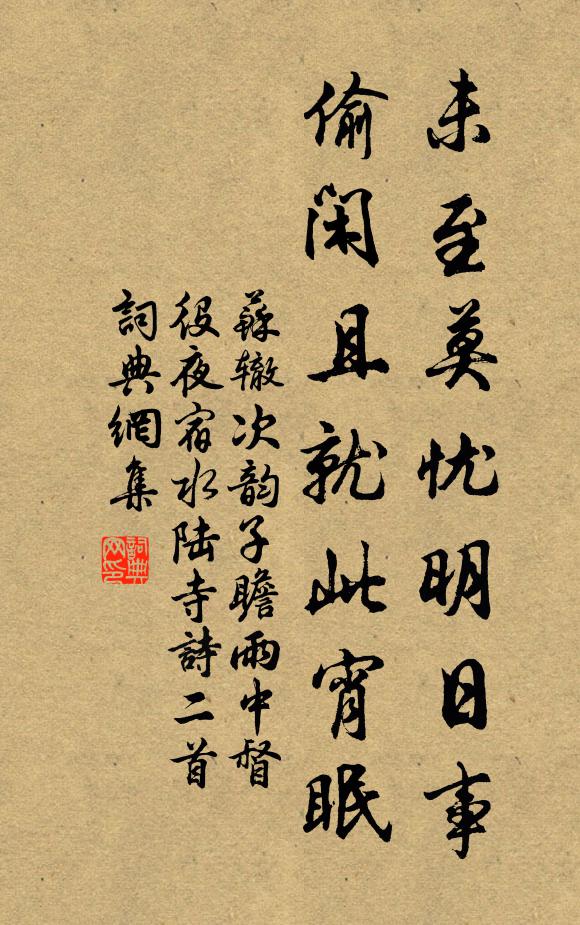 未至莫忧明日事
偷闲且就此宵眠
蘇辙次韵子瞻雨中督
役夜宿水陆寺詩二首
詞典網集
詞典网印